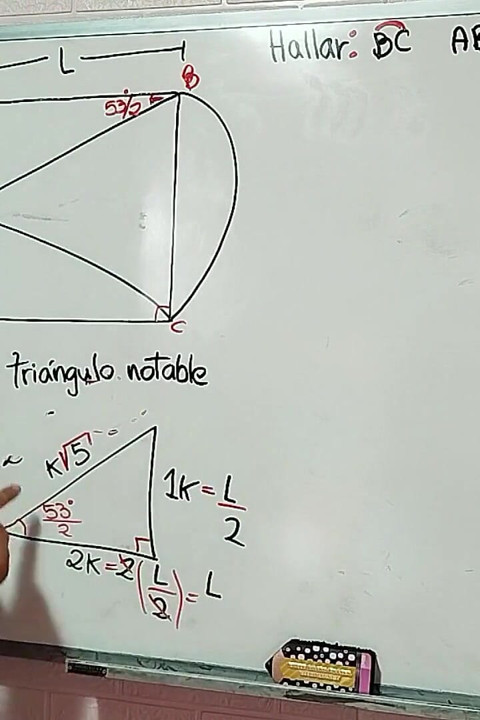 L
Hallar: BC AB
B
53°/2
C
triángulo notable
K√5
1K = L/2
53°/2
2K = 2(L/2) = L